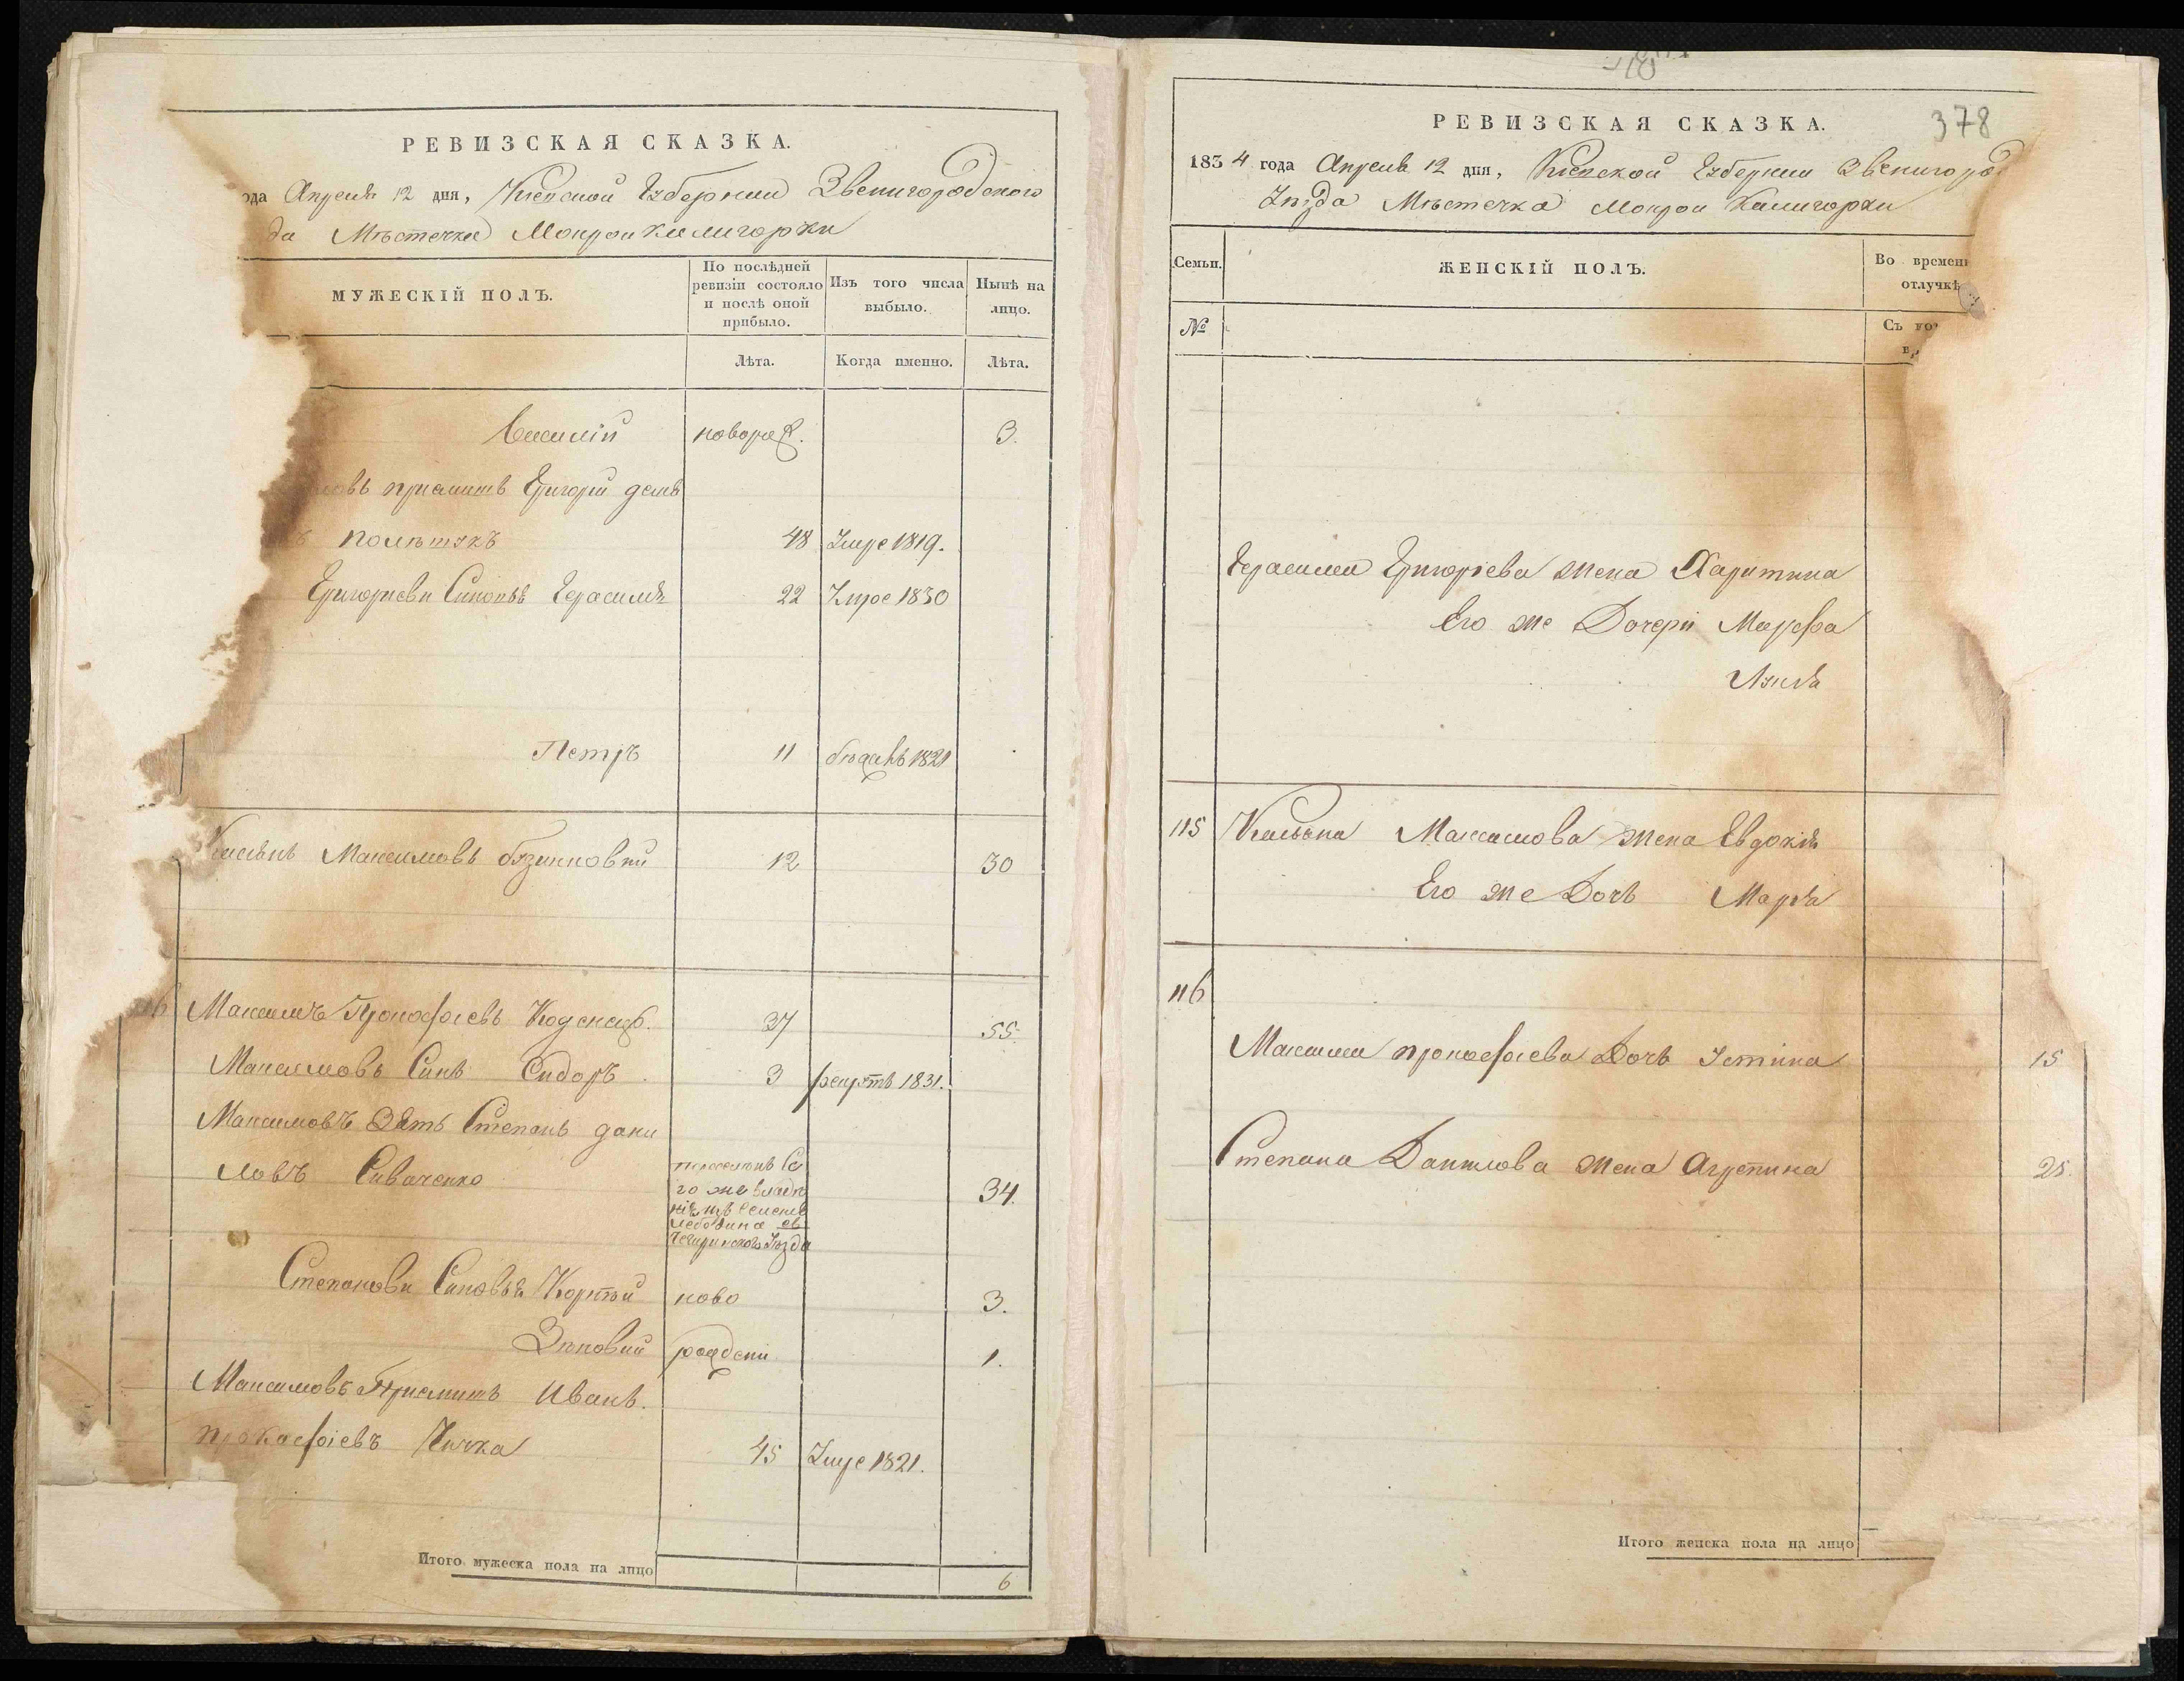 РЕВИЗСКАЯ СКАЗКА.
ода Апреля 12 дня, Кіевской Губерніи Звенигородского
да Мѣстечка Мокрои Калигорки
МУЖЕСКІЙ ПОЛЪ.
По послѣдней ревизіи состояло и послѣ оной прибыло.
Изъ того числа выбыло.
Нынѣ на лицо.
Лѣта.
Когда именно.
Лѣта.
Василій новорож. 3.
овъ приимитъ Григорій
48 Умре 1819.
Григориеви Синовья Герасимъ 22 Умре 1830
Петръ 11 бѣжавъ 1821
Касянъ Максимовъ 12 30
116 Максимъ Прокофіевъ 37 55.
Максимовъ Синъ Сидоръ 3 рекрутъ 1831.
Максимовъ Зять Степанъ дани
ловъ Сиваченко 34.
го же владѣ
Лебедина
Чегиринского Уезда
Степанови Синовья Корнѣй ново 3.
Зиновий рождени 1.
Максимовъ Приимитъ Иванъ
прокофіевъ Кичка 45 Умре 1821.
Итого мужеска пола на лицо 6
378
РЕВИЗСКАЯ СКАЗКА.
1834 года Апреля 12 дня, Кіевской Губерніи Звенигород
Уезда Мѣстечка Мокрои Калигорки
Семьи.
ЖЕНСКІЙ ПОЛЪ.
Во времени отлучкѣ
№
Съ ко
Герасима Григоріева жена Харитина
Его же Дочери Марфа
115 Касьяна Максимова жена Евдокія
Его же Дочь Марія
116
Максима прокофіева Дочь Устина 15
Степана Данилова жена Агрепина 25.
Итого женска пола на лицо